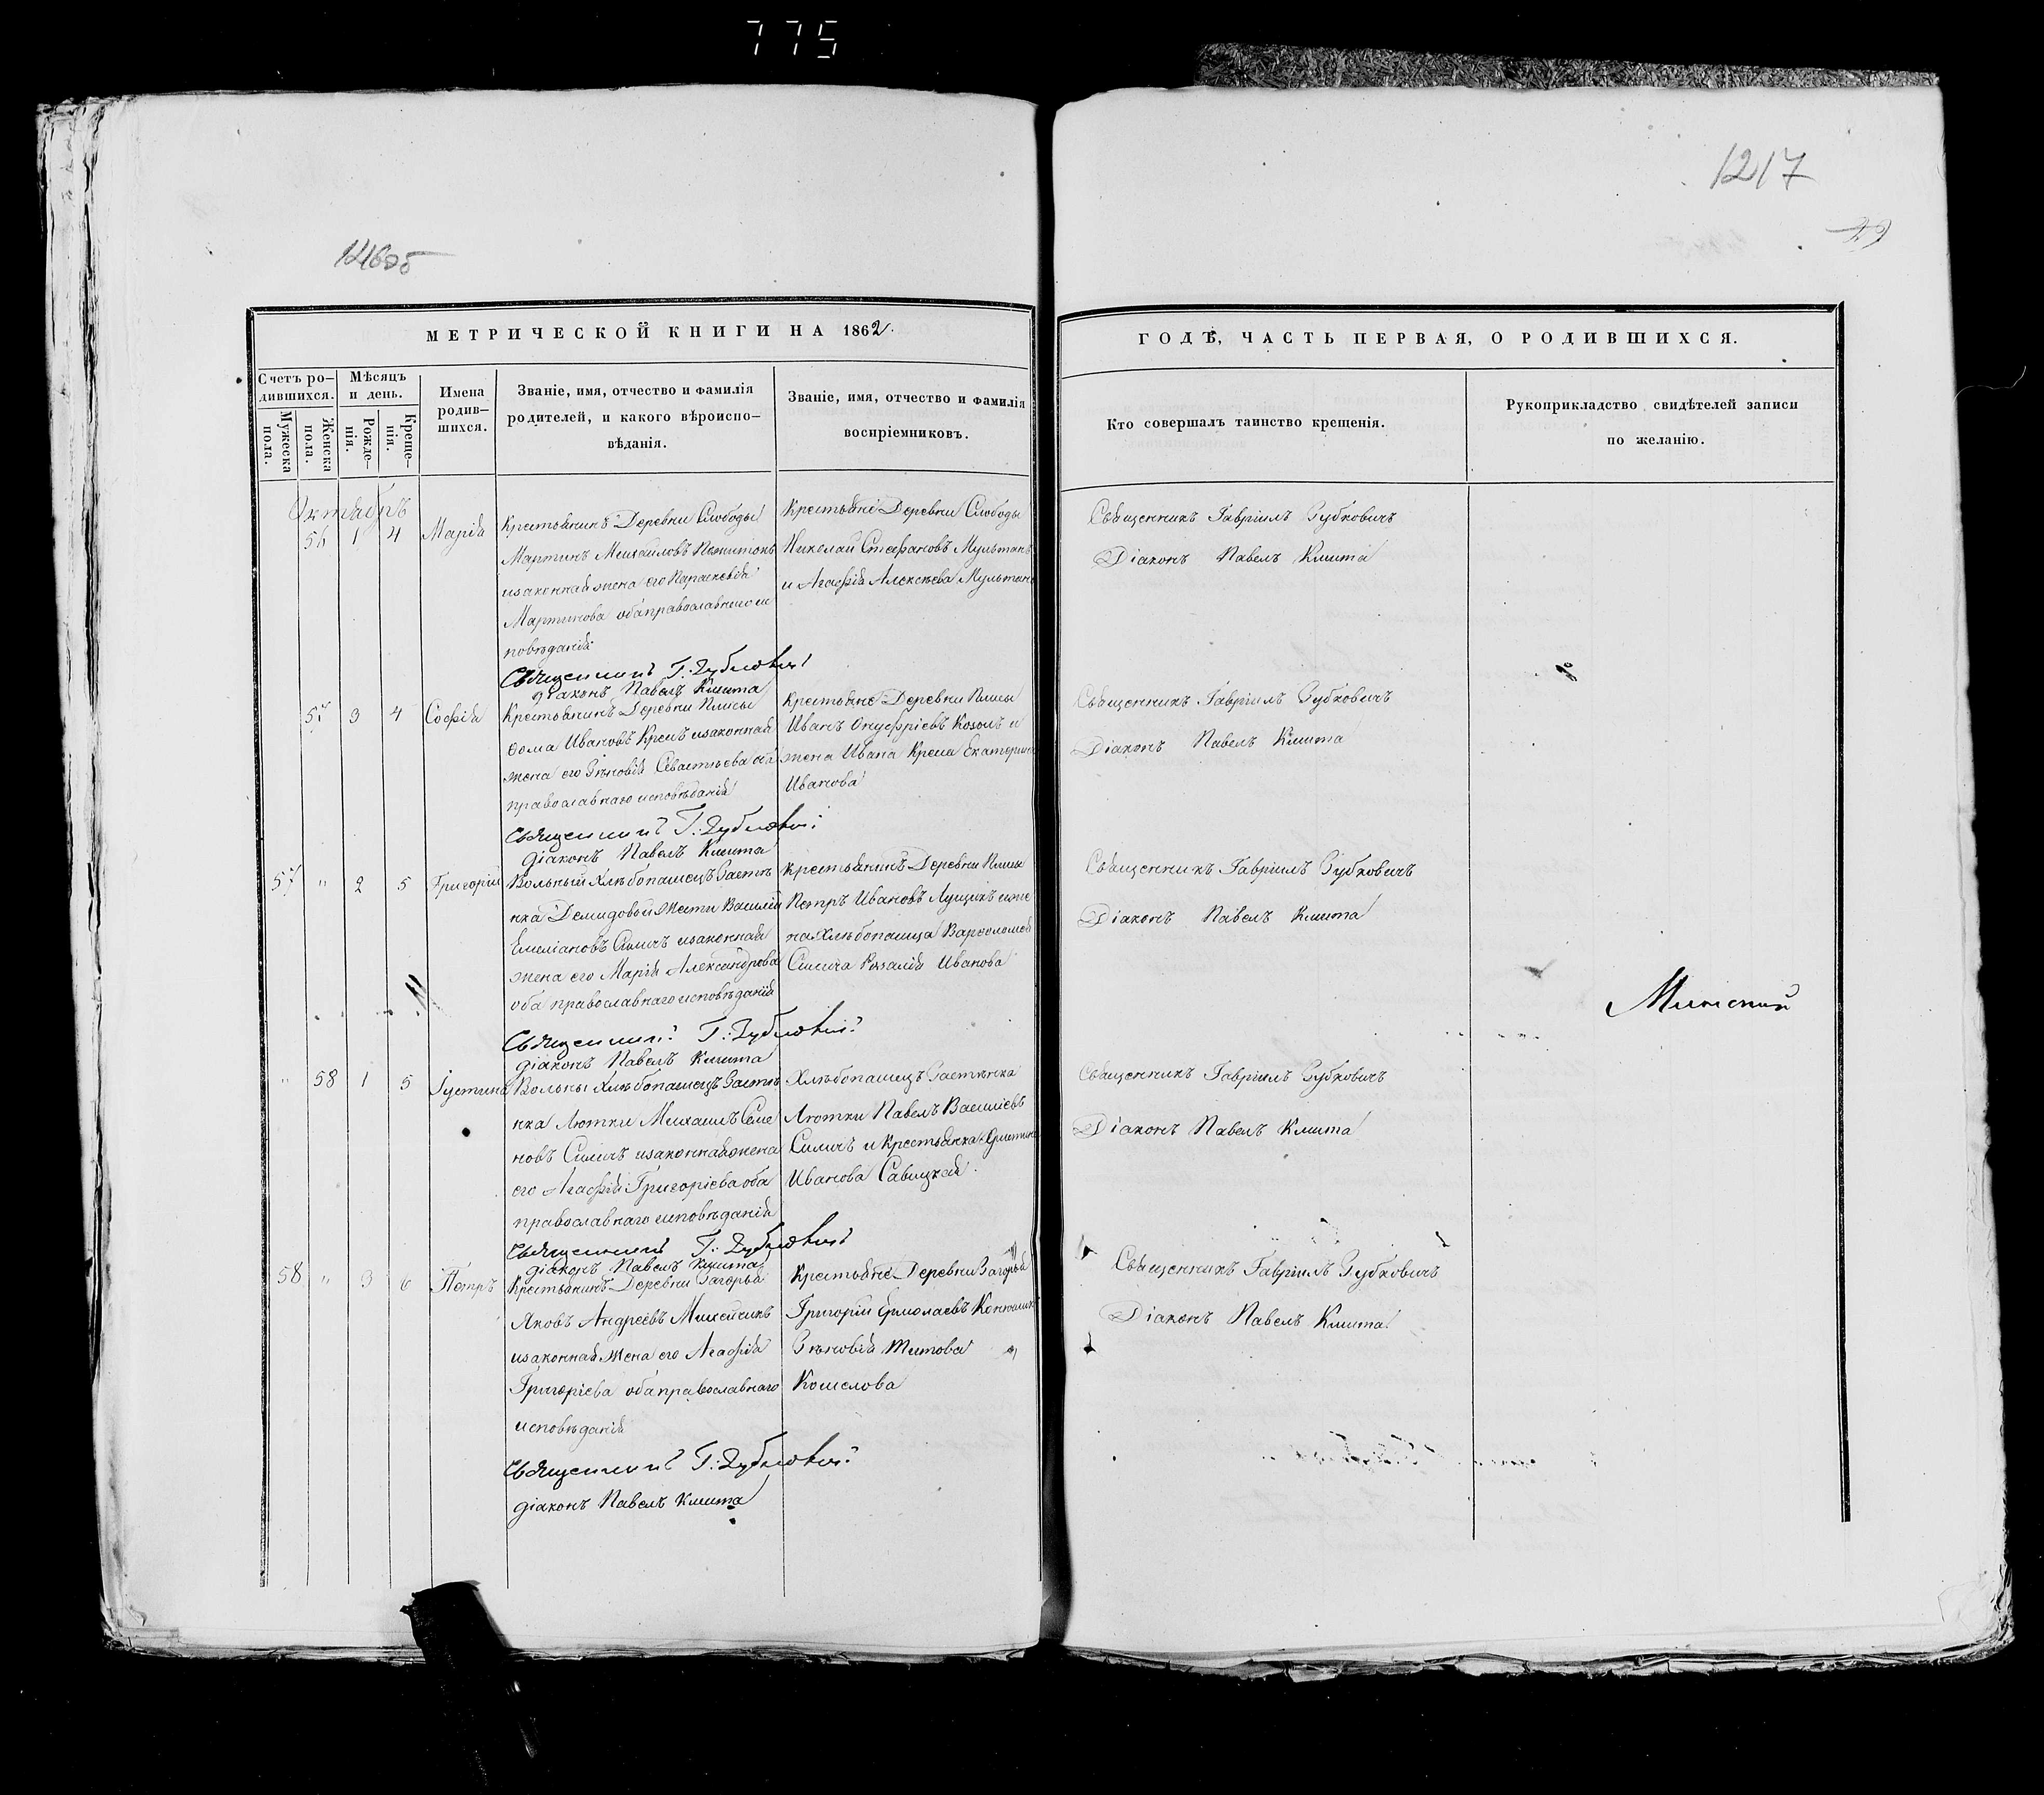 775
1217
1216об
МЕТРИЧЕСКОЙ КНИГИ НА 1862.
ГОДѢ, ЧАСТЬ ПЕРВАЯ, О РОДИВШИХСЯ.
Счетъ ро-
дившихся.
Мужеска
пола.
Женска
пола.
Мѣсяцъ
и день.
Рожде-
нія.
Креще-
нія.
Имена
родив-
шихся.
Званіе, имя, отчество и фамилія
родителей, и какого вѣроиспо-
вѣданія.
Званіе, имя, отчество и фамилія
воспріемниковъ.
Кто совершалъ таинство крещенія.
Рукоприкладство свидѣтелей записи
по желанію.
Октябрь
56 1 4 Марія
Крестьянинъ Деревни Слободы
Мартинъ Михайловъ
изаконная жена его Параскевія
Мартинова оба православнаго ис
повѣданія
Священникъ Г: Зубковичъ
діаконъ Павелъ Кмита
Крестьяне Деревни Слободы
Николай Стефановъ Мультанъ
и Агафія Алексѣева
Священникъ Гавріилъ Зубковичъ
Діаконъ Павелъ Кмита
57 3 4 Софія
Крестьянинъ Деревни Плисы
Ѳома Ивановъ Кремъ изаконная
жена его Зѣновія Севастьева оба
православнаго исповѣданія
Священникъ Г: Зубковичъ
діаконъ Павелъ Кмита
Крестьяне Деревни Плисы
Иванъ Онуфріевъ Козелъ и
жена Ивана Крема Екатерина
Иванова
Священникъ Гавріилъ Зубковичъ
Діаконъ Павелъ Кмита
57 " 2 5 Григорій
Вольный Хлѣбопашецъ Застѣ
нка Демидовой Василій
Емеліановъ Силичъ изаконная
жена его Марія Александрова
оба православнаго исповѣданія
Священникъ Г: Зубковичъ
діаконъ Павелъ Кмита
Крестьянинъ Деревни Плисы
Петръ Ивановъ Лущикъ иже
на Хлѣбопашца Варѳоломея
Силича Розалія Иванова
Священникъ Гавріилъ Зубковичъ
Діаконъ Павелъ Кмита
" 58 1 5 Іустина
Вольны Хлѣбопашецъ Застѣ
нка Лютки Михаилъ Семе
новъ Силичъ изаконная жена
его Агафія Григоріева оба
православнаго исповѣданія
Священникъ Г: Зубковичъ
діаконъ Павелъ Кмита
Хлѣбопашецъ Застѣнка
Лютки Павелъ Василіевъ
Силичъ и Крестьянка
Иванова Савицкая
Священникъ Гавріилъ Зубковичъ
Діаконъ Павелъ Кмита
58 " 3 6 Петръ
Крестьянинъ Деревни Загорья
Яковъ Андреевъ
изаконная жена его Агафія
Григоріева оба православнаго
исповѣданія
Священникъ Г: Зубковичъ
діаконъ Павелъ Кмита
Крестьяне Деревни Загорья
Григорій Ермолаевъ
Зѣновія Титова
Кошелова
Священникъ Гавріилъ Зубковичъ
Діаконъ Павелъ Кмита
Минскій